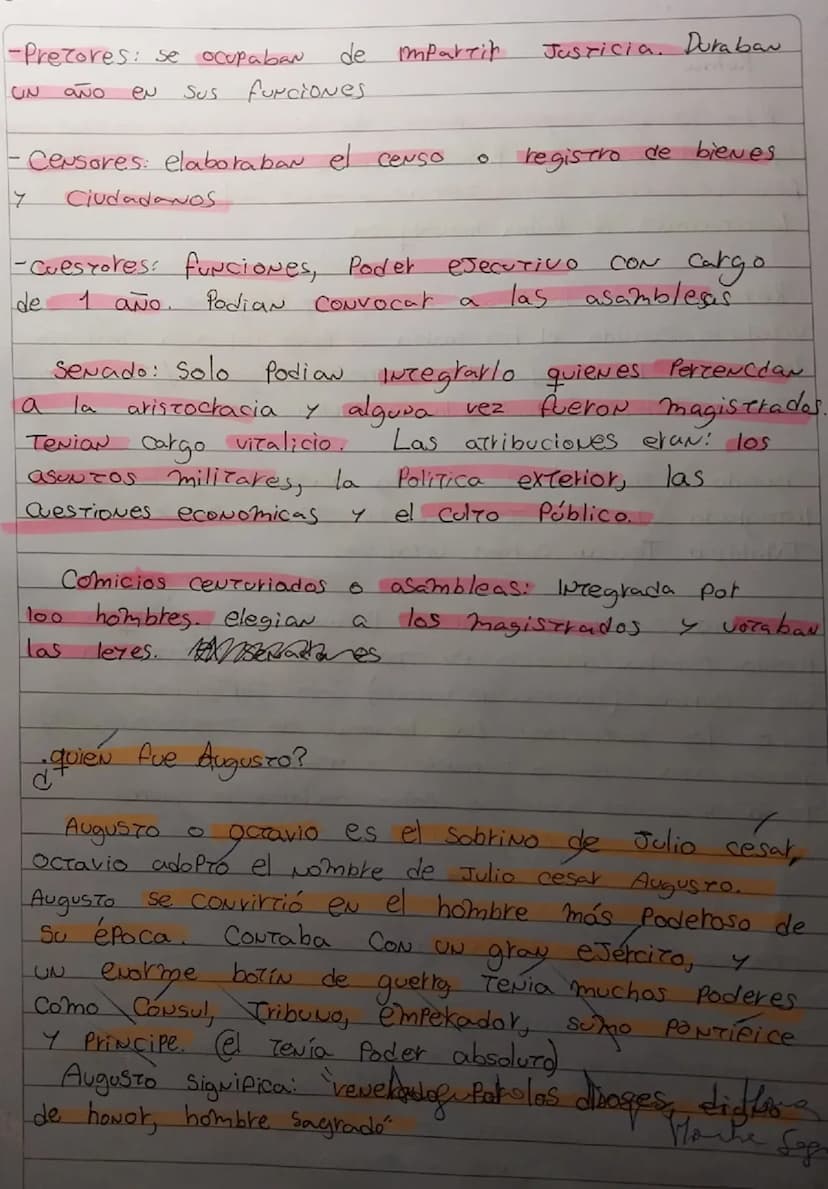 -Pretores: se ocupaban de impartir Justicia. Duraban
un año en sus funciones
-Censores: elaboraban el censo o registro de bienes
y Ciudadanos
-Cuestores: funciones, Poder ejecutivo con cargo
de 1 año. Podian convocar a las asambleas
Senado: Solo Podian integrarlo quienes Pertencian
a la aristocracia y alguna vez fueron magistrados.
Tenian cargo vitalicio. Las atribuciones eran: los
asuntos militares, la Politica exterior, las
Cuestiones economicas y el culto Público.
Comicios centuriados o asambleas: Integrada por
100 hombres. elegian a los magistrados y votaban
las leyes.
¿quién fue Augusto?
Augusto o octavio es el sobrino de Julio césar,
Octavio adoptó el nombre de Julio cesar Augusto.
Augusto se convirtió en el hombre más Poderoso de
su época. Contaba con un gran ejército, y
un enorme botín de guerra Tenía muchos poderes
Como Cónsul, Tribuno, emperador, sumo Pontífice
y Principe. (el tenía Poder absoluto)
Augusto significa: "venerado por los dioses, digno
de honor, hombre sagrado"